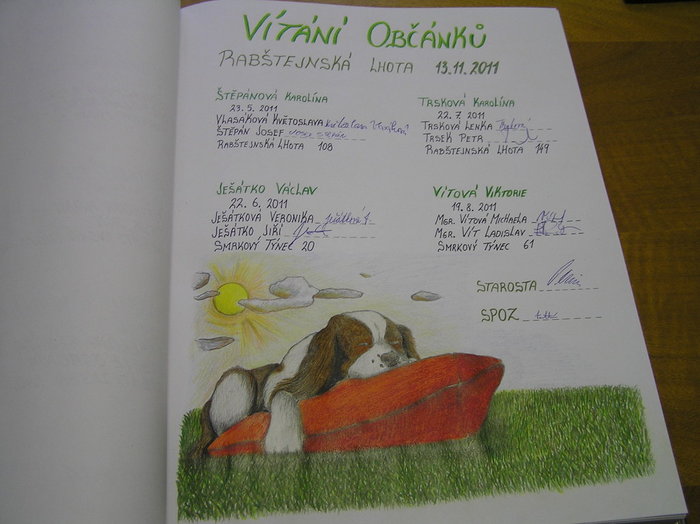 VÍTÁNÍ OBČÁNKŮ
RABŠTEJNSKÁ LHOTA 13.11.2011
ŠTĚPÁNOVÁ KAROLÍNA
23.5.2011
VLASÁKOVÁ KVĚTOSLAVA
ŠTĚPÁN JOSEF
RABŠTEJNSKÁ LHOTA 108
TRSKOVÁ KAROLÍNA
22.7.2011
TRSKOVÁ LENKA
TRSEK PETR
RABŠTEJNSKÁ LHOTA 149
JEŠÁTKO VÁCLAV
22.6.2011
JEŠÁTKOVÁ VERONIKA
JEŠÁTKO JIŘÍ
SMRKOVÝ TÝNEC 20
VÍTOVÁ VIKTORIE
19.8.2011
MGR. VÍTOVÁ MICHAELA
MGR. VÍT LADISLAV
SMRKOVÝ TÝNEC 61
STAROSTA
SPOZ